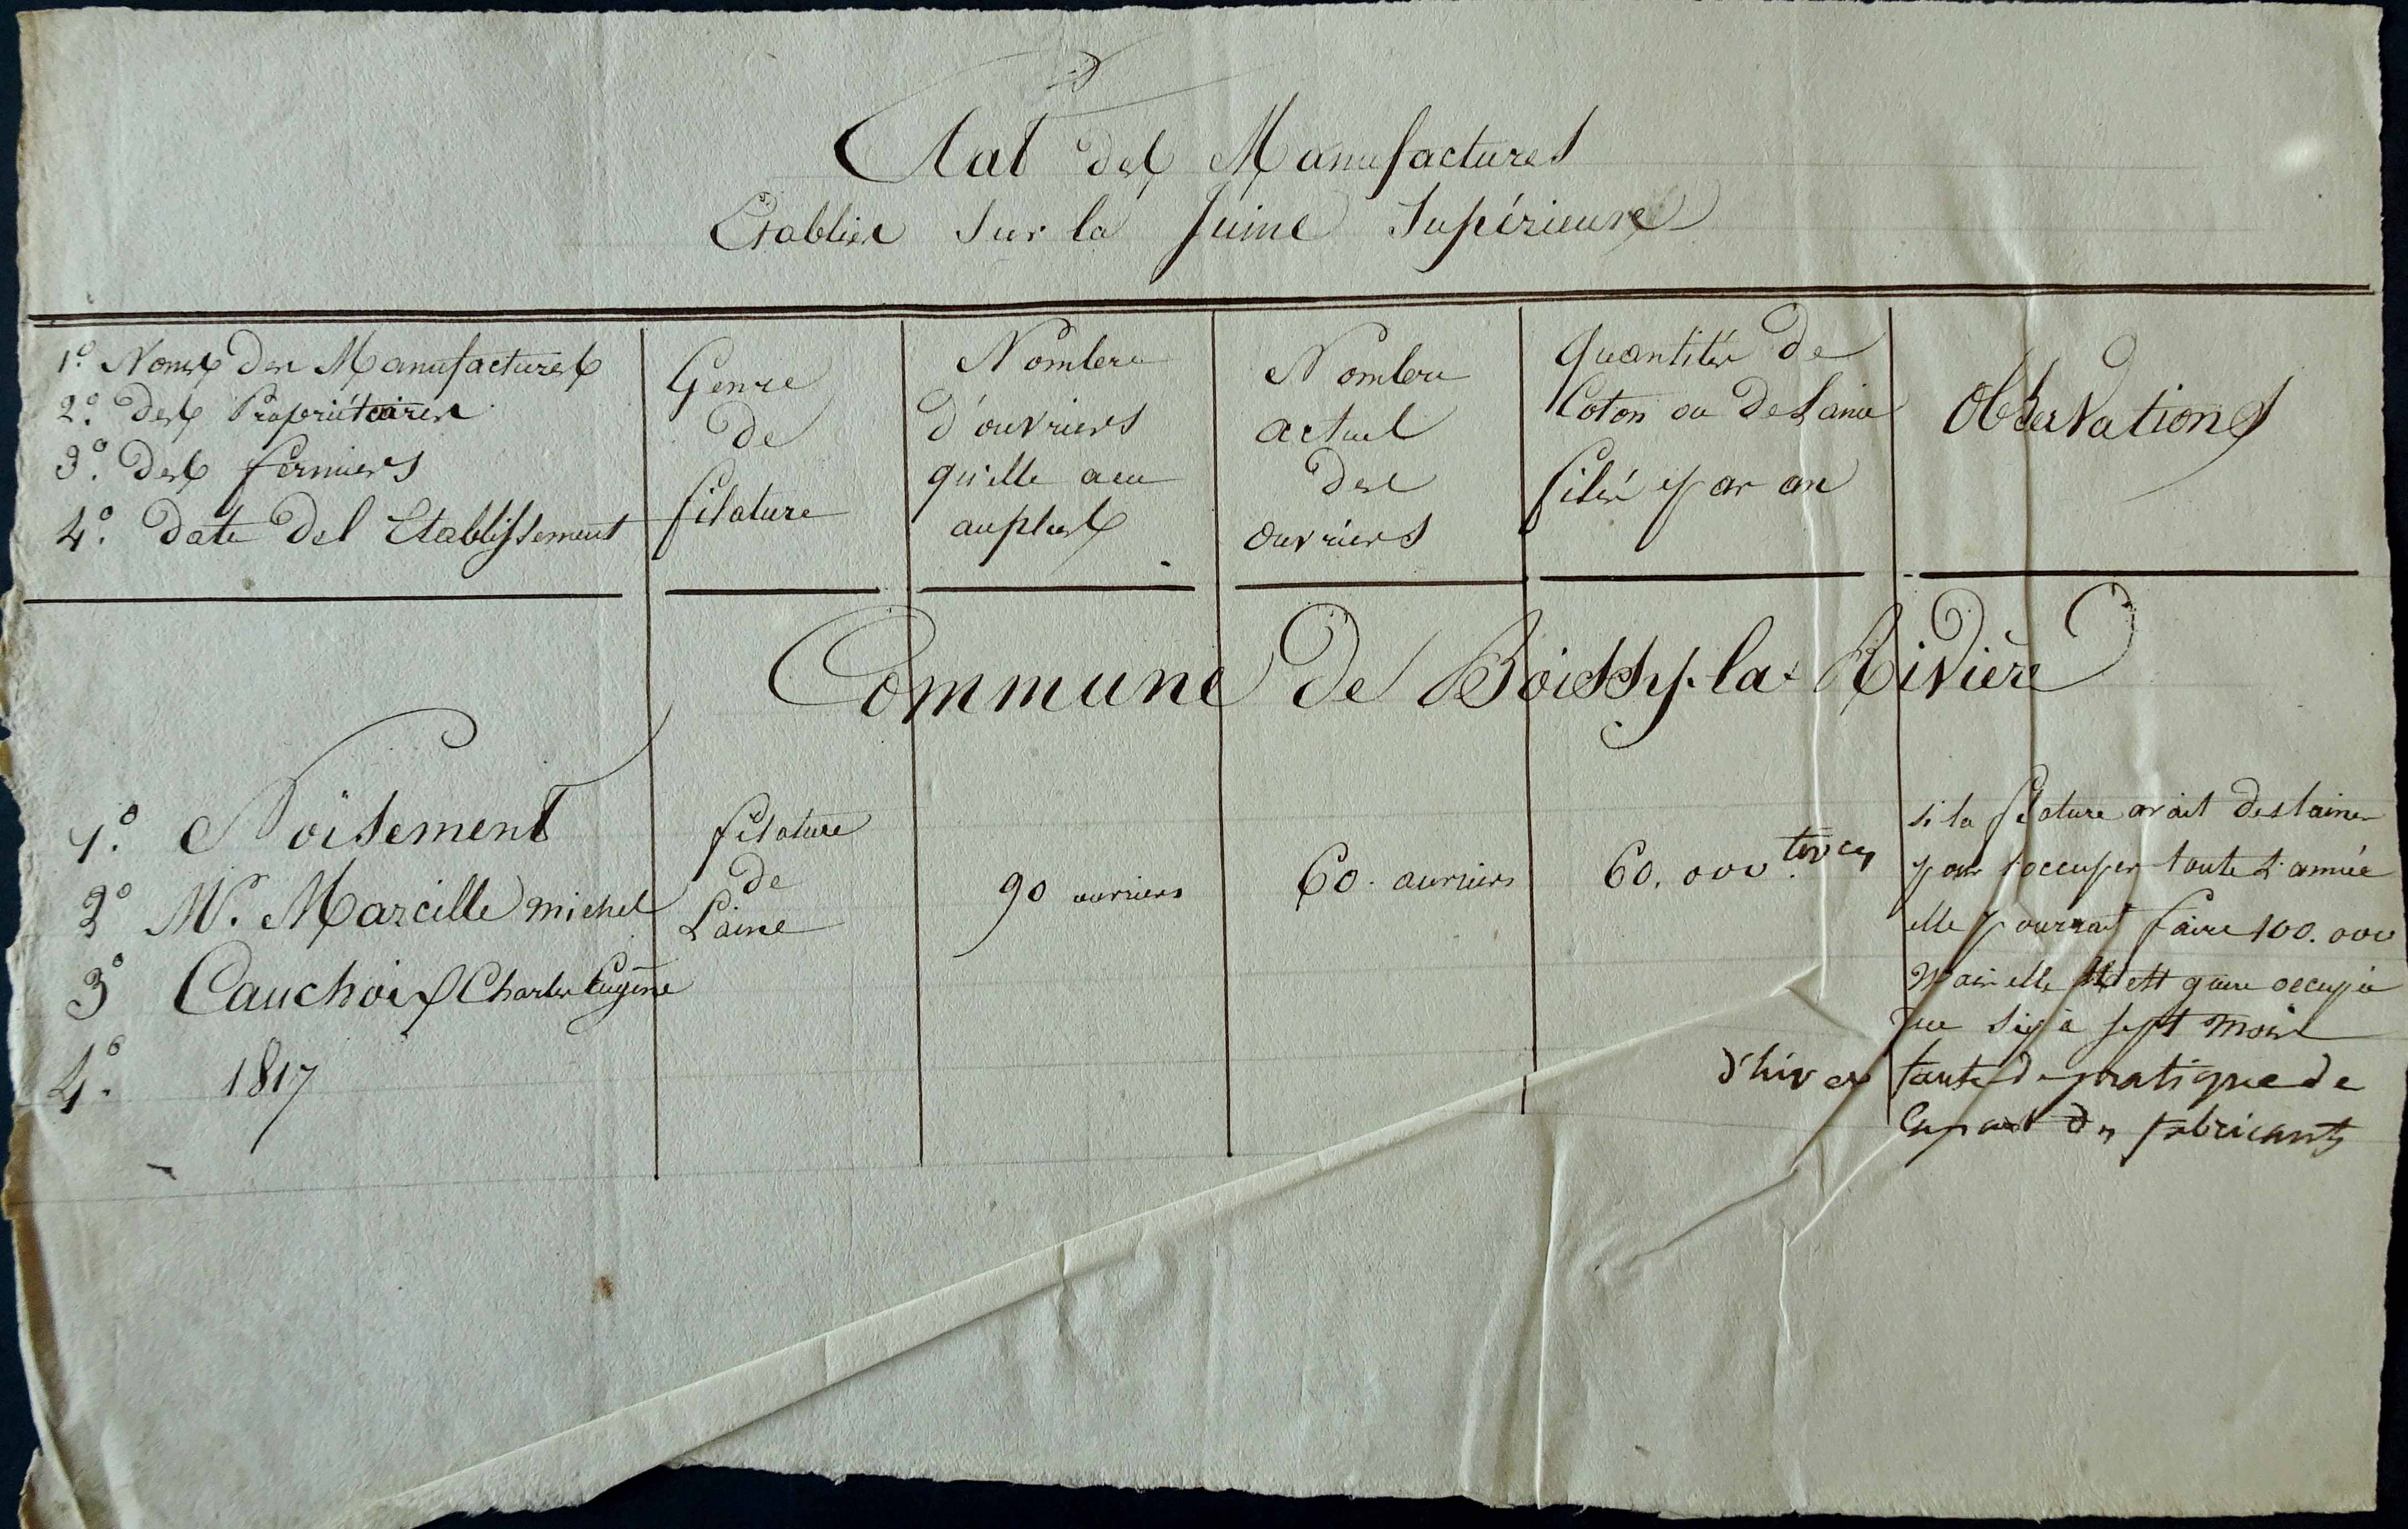 Etat des Manufactures
Etablies sur la Juine Supérieure
1.º Noms des Manufactures
2.º des Propriétaires
3.º des fermiers
4.º date de l'Etablissement
Genre
de
filature
Nombre
d'ouvriers
qu'elle a eu
au plus
Nombre
actuel
des
ouvriers
Quantités de
Coton ou de Laine
filés par an
Observations
Commune de Boissy-la-Rivière
1.º Noisement
2º M. Marcille michel
3º Cauchois Charles Eugène
4.º 1817
filature
de
Laine
90 ouvriers
60. ouvriers
60,000
si la filature avait des laines
pour s'occuper toute l'année
elle pourrait faire 100.000
mais elle n'est guere occupée
que six à sept mois
d'hiver faute de pratique de
la part des fabricants